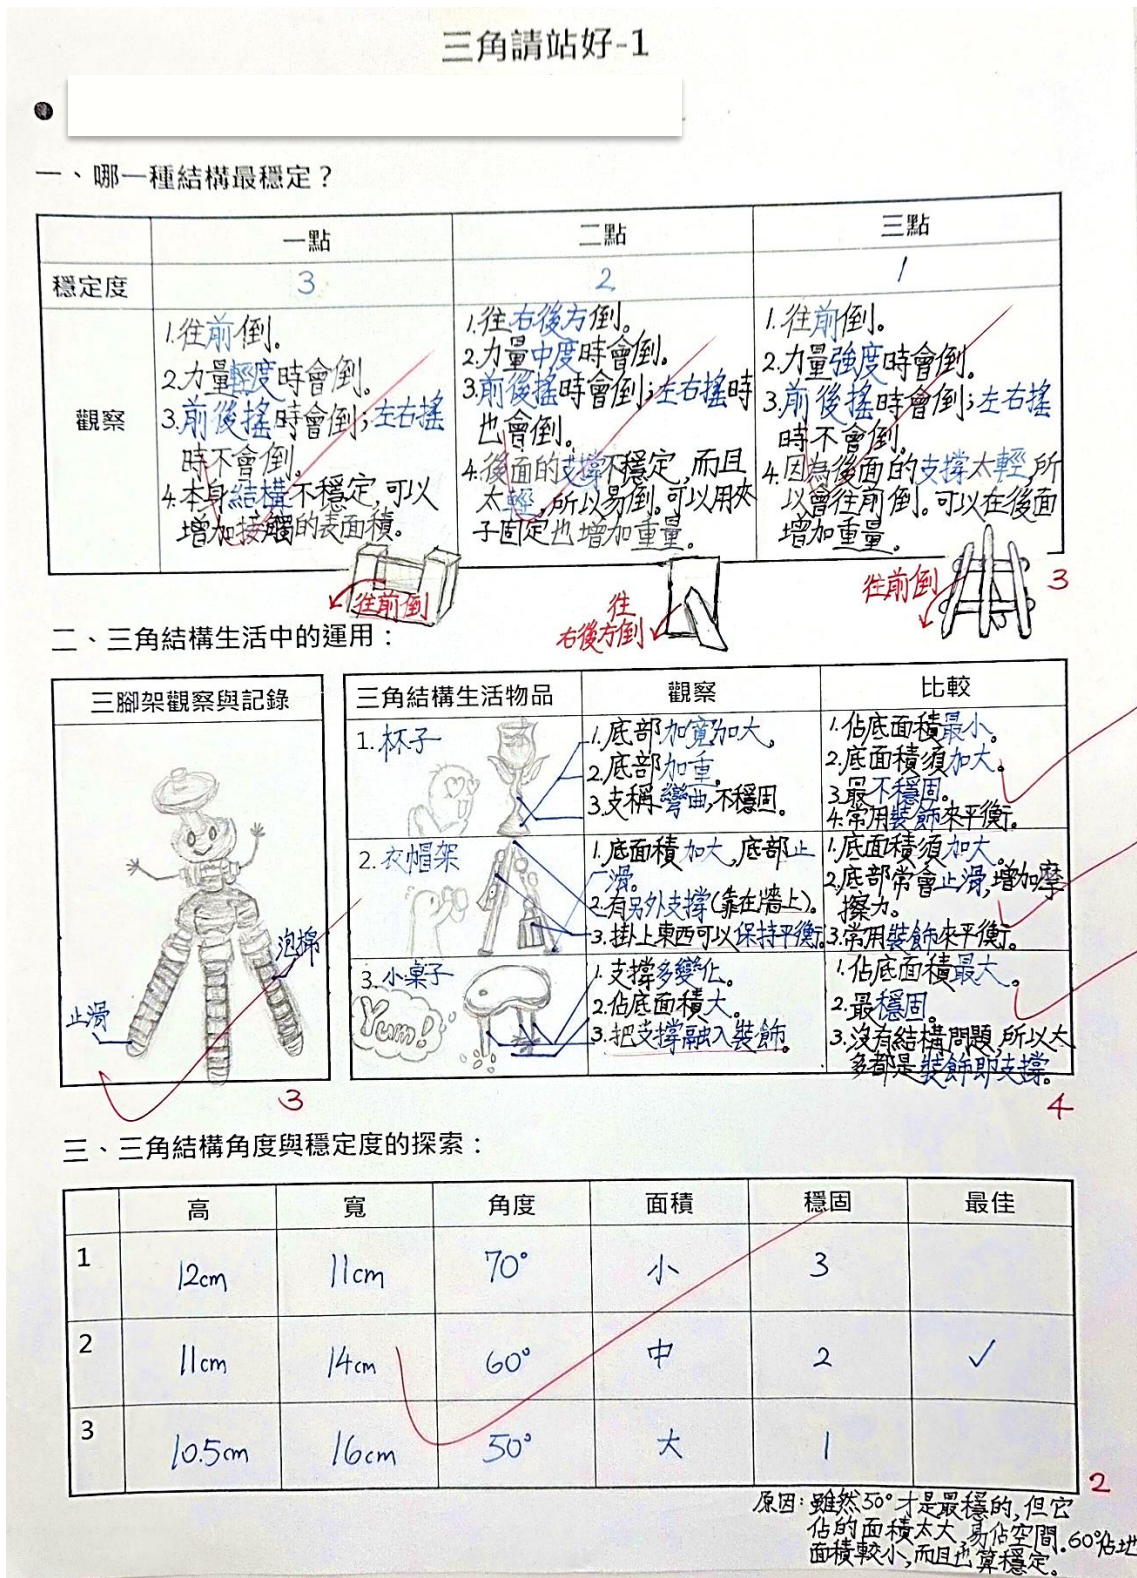 三角請站好-1
一、哪一種結構最穩定？
一點 二點 三點
穩定度 3 2 1
觀察
1.往前倒。
2.力量輕度時會倒。
3.前後搖時會倒；左右搖
時不會倒。
4.本身結構不穩定，可以
增加接觸的表面積。
1.往右後方倒。
2.力量中度時會倒。
3.前後搖時會倒；左右搖時
也會倒。
4.後面的支撐不穩定，而且
太輕，所以易倒。可以用夾
子固定也增加重量。
1.往前倒。
2.力量強度時會倒。
3.前後搖時會倒；左右搖
時不會倒。
4.因為後面的支撐太輕，所
以會往前倒。可以在後面
增加重量。
往前倒
往
右後方倒
往前倒
3
二、三角結構生活中的運用：
三腳架觀察與記錄
泡棉
止滑
3
三角結構生活物品 觀察 比較
1.杯子
1.底部加寬加大。
2.底部加重。
3.支稱彎曲，不穩固。
1.佔底面積最小。
2.底面積須加大。
3.最不穩固。
4.常用裝飾來平衡。
2.衣帽架
1.底面積加大，底部止
滑。
2.有另外支撐(靠在牆上)。
3.掛上東西可以保持平衡。
1.底面積須加大。
2.底部常會止滑，增加摩
擦力。
3.常用裝飾來平衡。
3.小桌子
Yum!
1.支撐多變化。
2.佔底面積大。
3.把支撐融入裝飾。
1.佔底面積最大。
2.最穩固。
3.沒有結構問題，所以太
多都是裝飾即支撐。
4
三、三角結構角度與穩定度的探索：
高 寬 角度 面積 穩固 最佳
1 12cm 11cm 70° 小 3
2 11cm 14cm 60° 中 2 ✓
3 10.5cm 16cm 50° 大 1
2
原因：雖然50°才是最穩的，但它
佔的面積太大，易佔空間。60°佔地
面積較小，而且也算穩定。